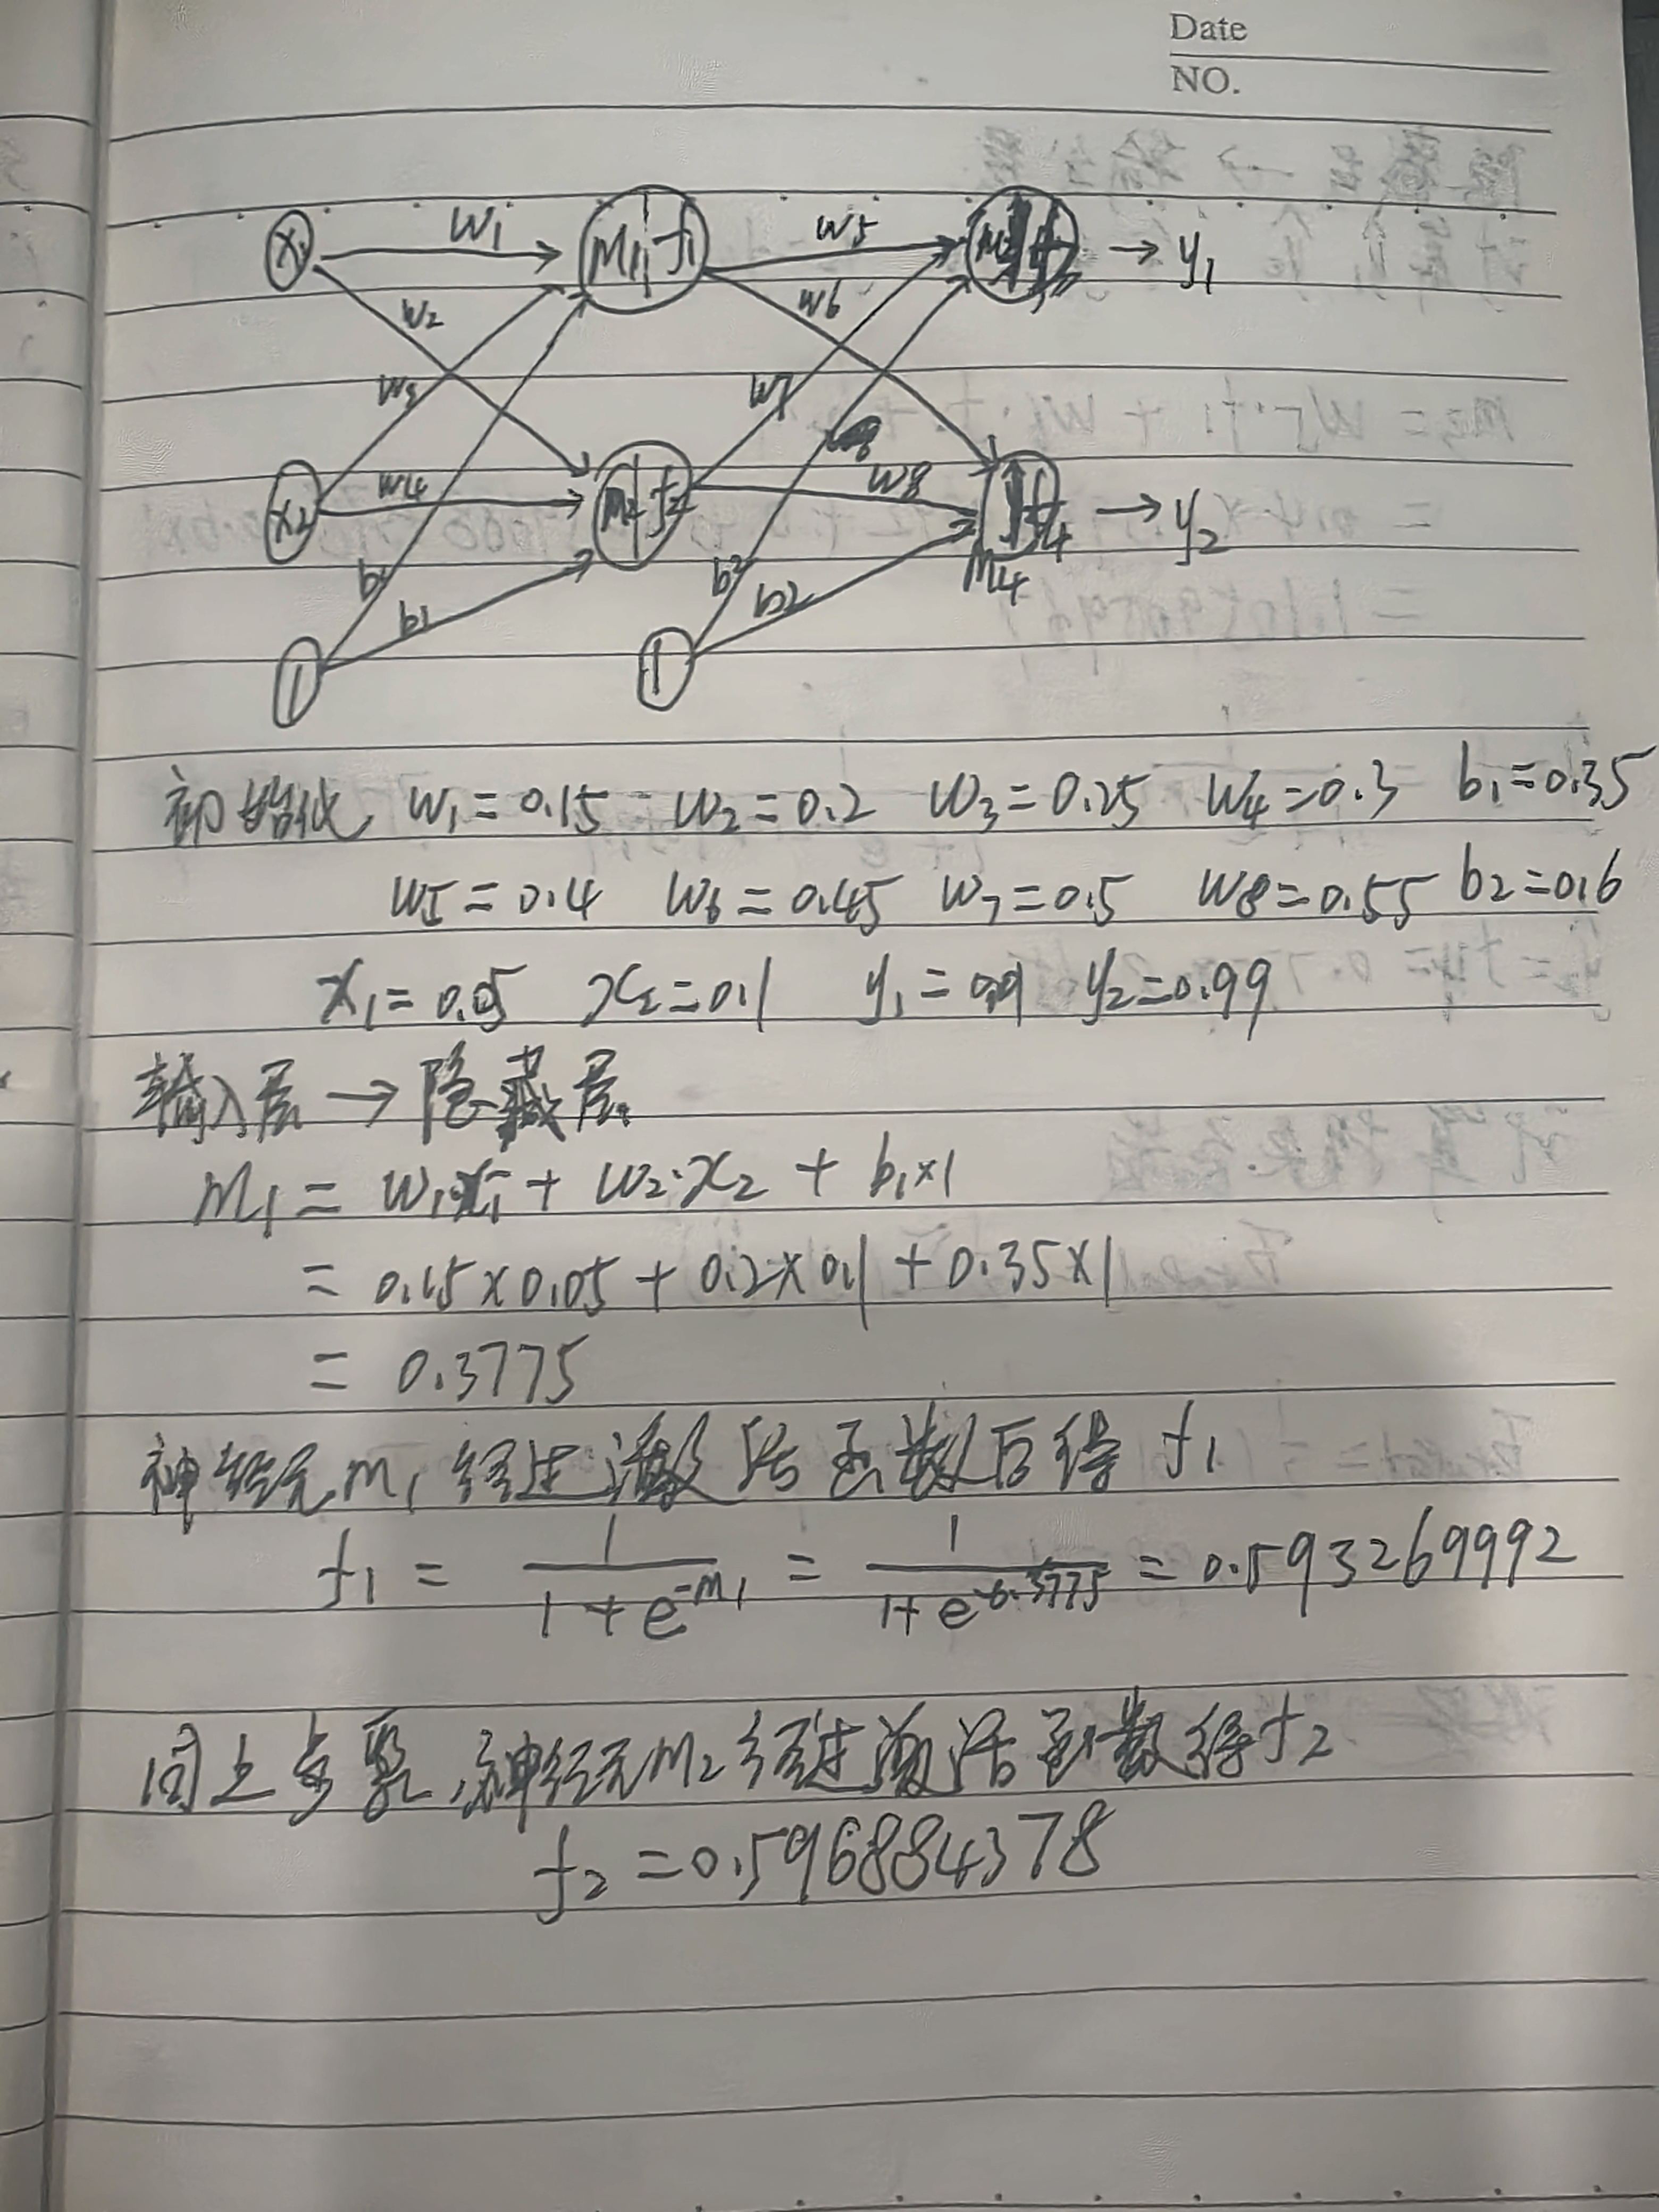 Date
NO.
x1 w1 m1 f1 w5 → y1
w2 w6
w3 w7
x2 w4 m2 f2 w8 f4 → y2
b1 b2 m4
b1 b2
1 1
初始化 w1=0.15 w2=0.2 w3=0.25 w4=0.3 b1=0.35
w5=0.4 w6=0.45 w7=0.5 w8=0.55 b2=0.6
x1=0.05 x2=0.1 y1=0.01 y2=0.99
输入层→隐藏层
m1 = w1·x1 + w2·x2 + b1×1
= 0.15×0.05 + 0.2×0.1 + 0.35×1
= 0.3775
神经元m1经过激活函数后得 f1
f1 = 1/(1+e^-m1) = 1/(1+e^-0.3775) = 0.593269992
同上步骤,神经元m2经过激活函数得f2
f2=0.596884378